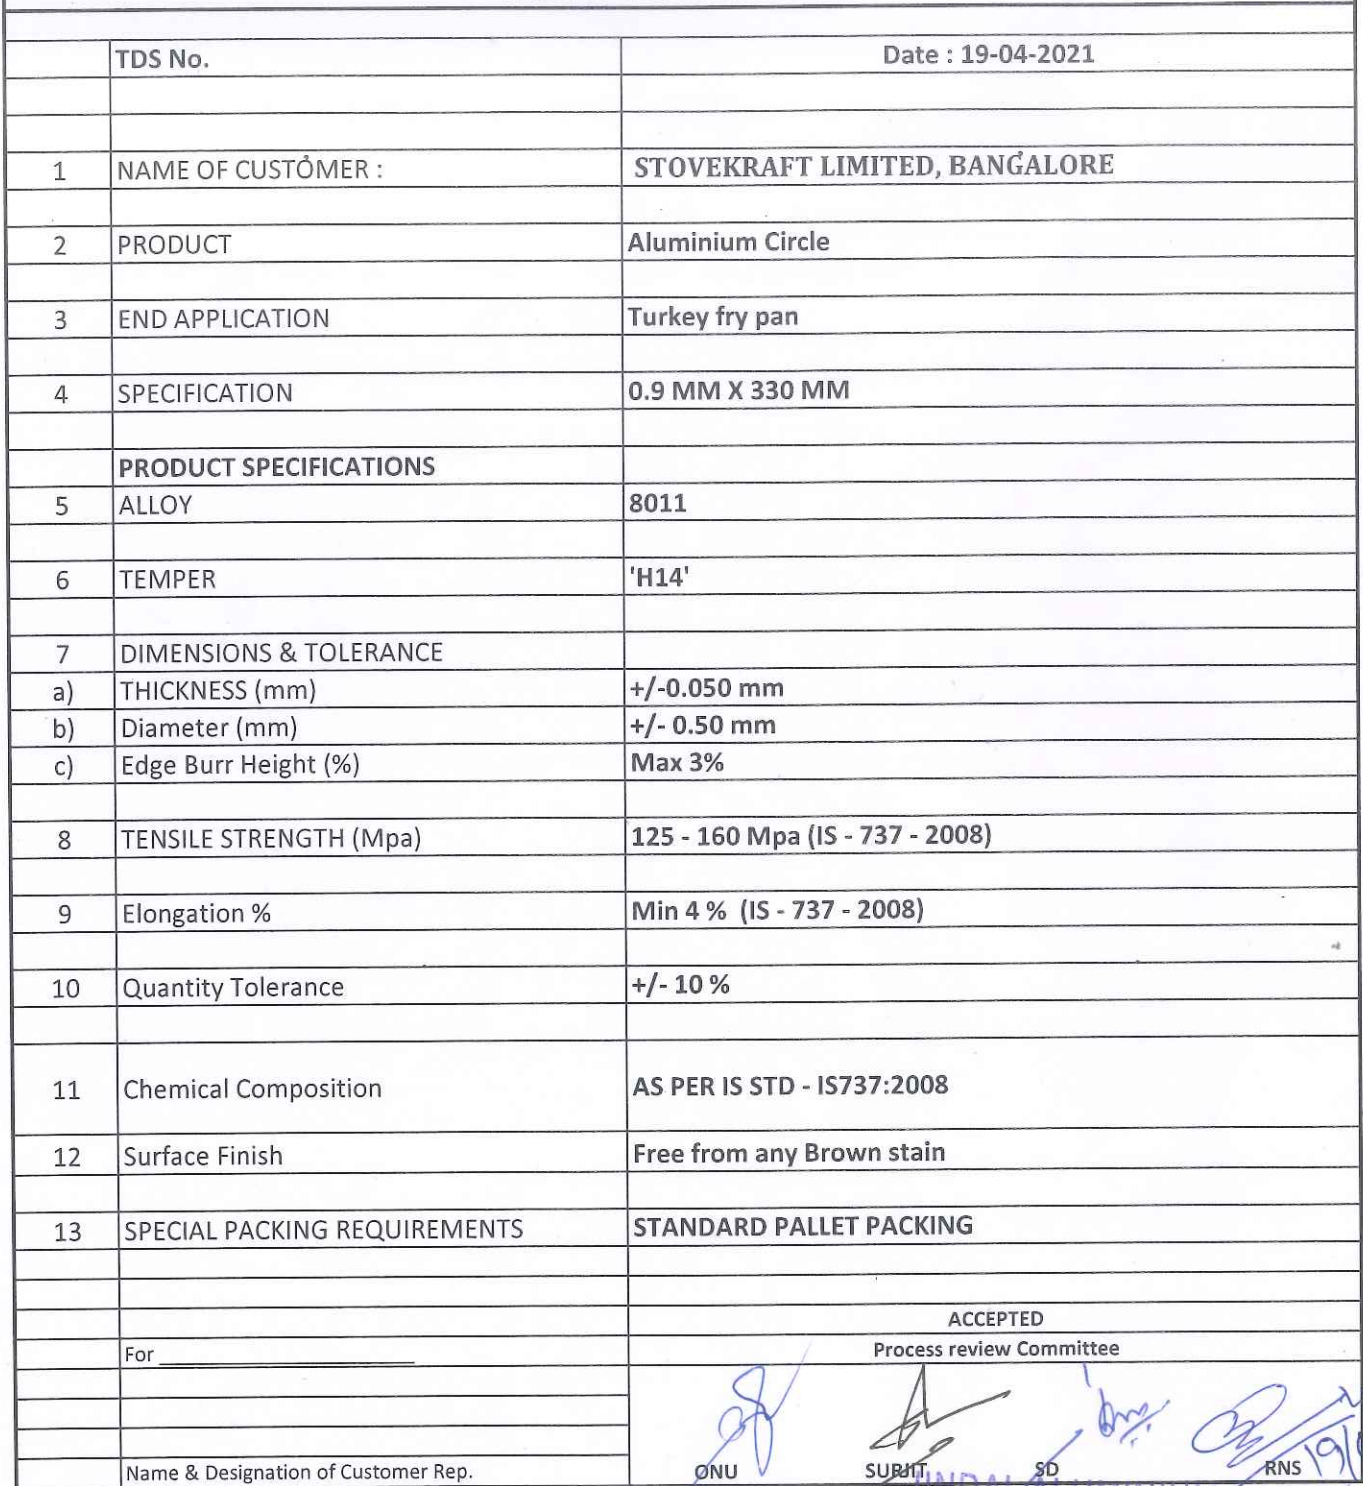 TDS No. Date : 19-04-2021
1 NAME OF CUSTOMER : STOVEKRAFT LIMITED, BANGALORE
2 PRODUCT Aluminium Circle
3 END APPLICATION Turkey fry pan
4 SPECIFICATION 0.9 MM X 330 MM
PRODUCT SPECIFICATIONS
5 ALLOY 8011
6 TEMPER 'H14'
7 DIMENSIONS & TOLERANCE
a) THICKNESS (mm) +/-0.050 mm
b) Diameter (mm) +/- 0.50 mm
c) Edge Burr Height (%) Max 3%
8 TENSILE STRENGTH (Mpa) 125 - 160 Mpa (IS - 737 - 2008)
9 Elongation % Min 4 % (IS - 737 - 2008)
10 Quantity Tolerance +/- 10 %
11 Chemical Composition AS PER IS STD - IS737:2008
12 Surface Finish Free from any Brown stain
13 SPECIAL PACKING REQUIREMENTS STANDARD PALLET PACKING
ACCEPTED
For Process review Committee
Name & Designation of Customer Rep. ONU SURJIT SD RNS